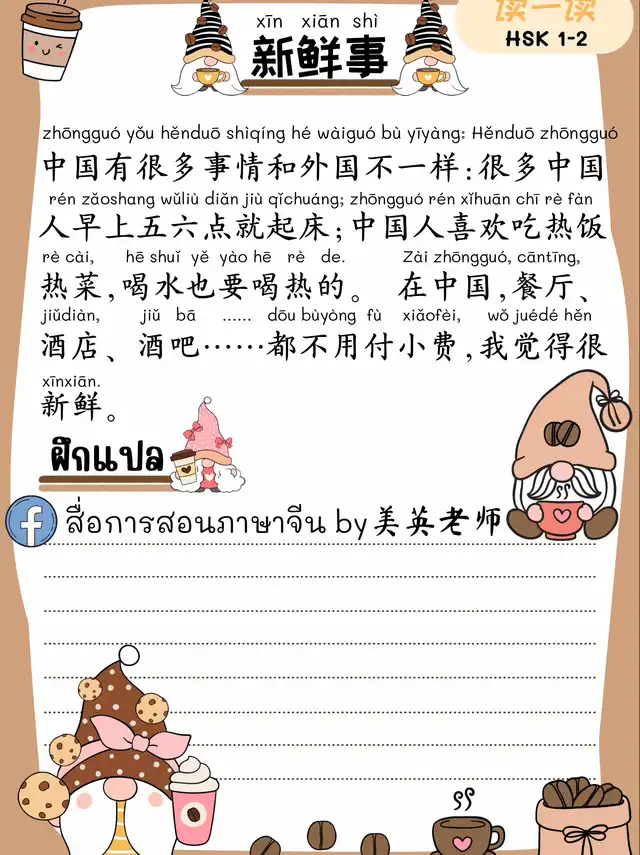 读一读
HSK 1-2
xīn xiān shì
新鲜事
zhōngguó yǒu hěnduō shìqíng hé wàiguó bù yīyàng: Hěnduō zhōngguó
中国有很多事情和外国不一样:很多中国
rén zǎoshang wǔliù diǎn jiù qǐchuáng; zhōngguó rén xǐhuān chī rè fàn
人早上五六点就起床;中国人喜欢吃热饭
rè cài, hē shuǐ yě yào hē rè de. Zài zhōngguó, cāntīng,
热菜,喝水也要喝热的。 在中国,餐厅、
jiǔdiàn, jiǔ bā ...... dōu bùyòng fù xiǎofèi, wǒ juédé hěn
酒店、酒吧……都不用付小费,我觉得很
xīnxiān.
新鲜。
ฝึกแปล
สื่อการสอนภาษาจีน by美英老师